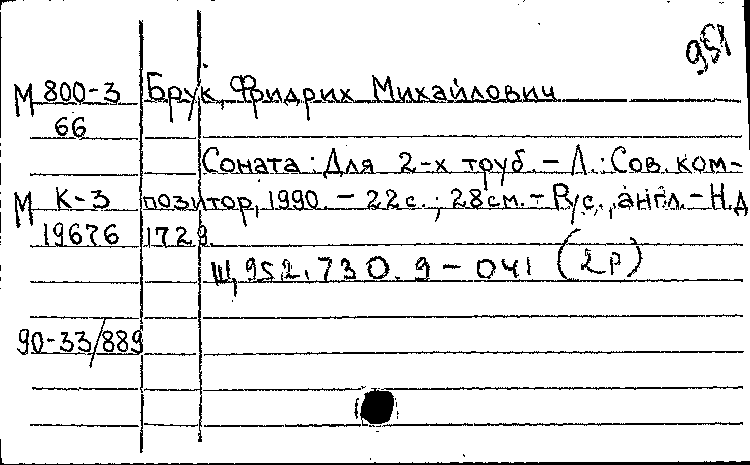 951
М 800-3 Брук, Фридрих Михайлович
66
Соната: Для 2-х труб. - Л.: Сов. ком-
М К-3 позитор, 1990. - 22с.; 28см. - Рус., англ. - Н.д
19676 1729.
Щ952.730.9-041 (2Р)
90-33/889